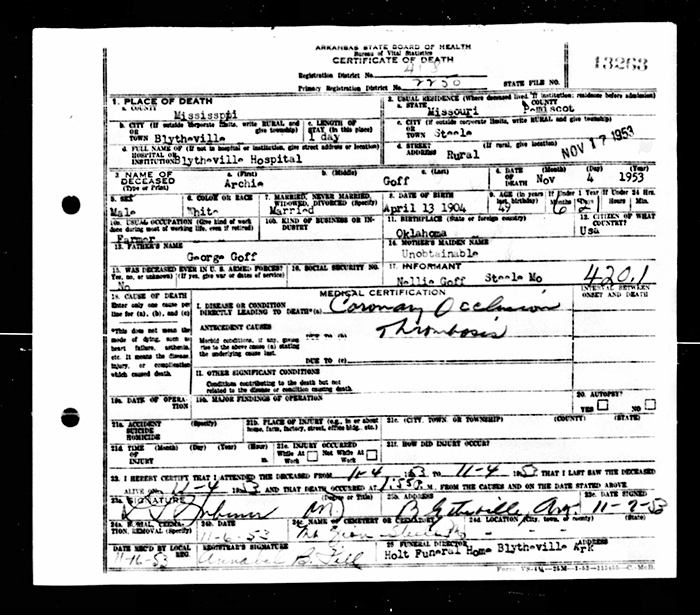 ARKANSAS STATE BOARD OF HEALTH
Bureau of Vital Statistics
CERTIFICATE OF DEATH
Registration District No.
Primary Registration District No. 2250 STATE FILE NO. 13263
1. PLACE OF DEATH
a. COUNTY Mississppi
2. USUAL RESIDENCE (Where deceased lived. If institution: residence before admission)
a. STATE Missouri COUNTY Pemiscot
b. CITY (If outside corporate limits, write RURAL and give township) OR TOWN Blytheville
c. LENGTH OF STAY (in this place) 1 day
c. CITY (If outside corporate limits, write RURAL and give township) OR TOWN Steele
d. FULL NAME OF (If not in hospital or institution, give street address or location) HOSPITAL OR INSTITUTION Blytheville Hospital
d. STREET ADDRESS (If rural, give location) Rural
NOV 17 1953
3. NAME OF DECEASED (Type or Print) a. (First) Archie b. (Middle) c. (Last) Goff
4. DATE OF DEATH (Month) Nov (Day) 4 (Year) 1953
5. SEX Male
6. COLOR OR RACE White
7. MARRIED, NEVER MARRIED, WIDOWED, DIVORCED (Specify) Married
8. DATE OF BIRTH April 13 1904
9. AGE (In years last birthday) 49 If Under 1 Year Months 6 Days If Under 24 Hrs. Hours Min.
10a. USUAL OCCUPATION (Give kind of work done during most of working life, even if retired) Farmer
10b. KIND OF BUSINESS OR INDUSTRY
11. BIRTHPLACE (State or foreign country) Oklahoma
12. CITIZEN OF WHAT COUNTRY? Usa
13. FATHER'S NAME George Goff
14. MOTHER'S MAIDEN NAME Unobtainable
15. WAS DECEASED EVER IN U.S. ARMED FORCES? (Yes, no, or unknown) (If yes, give war or dates of service) No
16. SOCIAL SECURITY NO.
17. INFORMANT Nellie Goff Steele Mo
18. CAUSE OF DEATH
Enter only one cause per line for (a), (b), and (c)
MEDICAL CERTIFICATION
420.1
INTERVAL BETWEEN ONSET AND DEATH
I. DISEASE OR CONDITION DIRECTLY LEADING TO DEATH*(a) Coronary Occlusion
*This does not mean the mode of dying, such as heart failure, asthenia, etc. It means the disease, injury, or complication which caused death.
ANTECEDENT CAUSES
Morbid conditions, if any, giving rise to the above cause (a) stating the underlying cause last.
DUE TO (b) Thrombosis
DUE TO (c)
II. OTHER SIGNIFICANT CONDITIONS
Conditions contributing to the death but not related to the disease or condition causing death.
19a. DATE OF OPERATION
19b. MAJOR FINDINGS OF OPERATION
20. AUTOPSY? YES NO
21a. ACCIDENT SUICIDE HOMICIDE (Specify)
21b. PLACE OF INJURY (e.g., in or about home, farm, factory, street, office bldg., etc.)
21c. (CITY, TOWN OR TOWNSHIP) (COUNTY) (STATE)
21d. TIME OF INJURY (Month) (Day) (Year) (Hour)
21e. INJURY OCCURRED While At Work Not While At Work
21f. HOW DID INJURY OCCUR?
22. I HEREBY CERTIFY THAT I ATTENDED THE DECEASED FROM 11-4 1953 TO 11-4 1953 THAT I LAST SAW THE DECEASED
ALIVE ON 11-4 1953 AND THAT DEATH OCCURRED AT M. FROM THE CAUSES AND ON THE DATE STATED ABOVE.
23a. SIGNATURE (Degree or Title) MD
23b. ADDRESS Blytheville, Ark.
23c. DATE SIGNED 11-9-53
24a. BURIAL, CREMATION, REMOVAL (Specify)
24b. DATE 11-6-53
24c. NAME OF CEMETERY OR CREMATORY Mt. Zion
24d. LOCATION (City, town, or county) (State)
DATE REC'D BY LOCAL REG. 11-16-53
REGISTRAR'S SIGNATURE
25. FUNERAL DIRECTOR ADDRESS
Holt Funeral Home Blytheville Ark